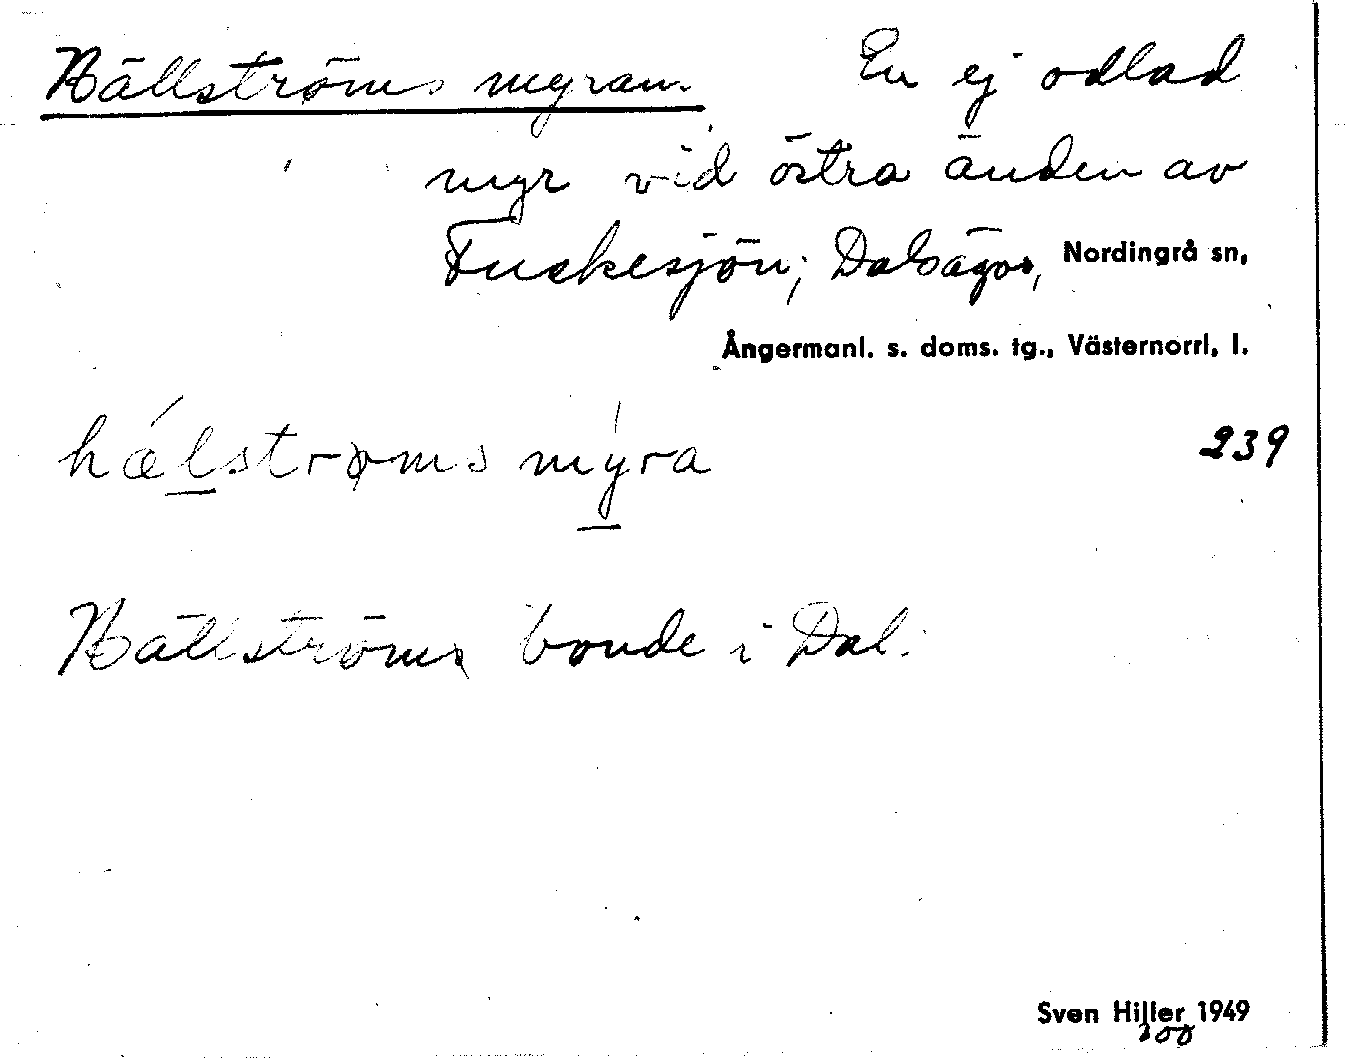 Hällströms myran. En ej odlad
myr vid östra änden av
Fuskesjön; Dalsägor, Nordingrå sn,
Ångermanl. s. doms. tg., Västernorrl. l.
hælstrøms myra 239
Hällströms bonde i Dal.
Sven Hiller 1949